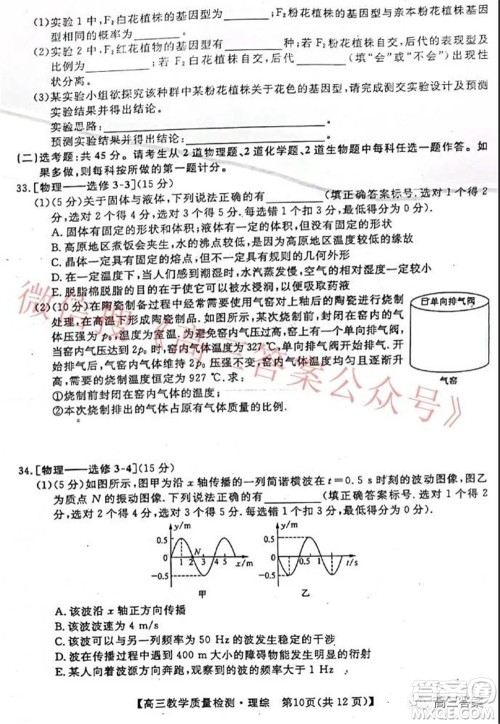 (1)实验1中,F₂白花植株的基因型为____;F₂粉花植株的基因型与亲本粉花植株基因
型相同的概率为____。
(2)实验2中,F₂红花植物的基因型有____种;若F₂白花植株自交,后代的表现型及
比例为____;若F₂白花植株自交,后代____(填“会”或“不会”)出现性
状分离。
(3)某实验小组欲探究该种群中某粉花植株关于花色的基因型,请完成测交实验设计及预测
实验结果并得出结论。
实验思路:____。
预测实验结果并得出结论:____。
(二)选考题:共45分。请考生从2道物理题、2道化学题、2道生物题中每科任选一题作答。如
果多做,则每科按所做的第一题计分。
33.[物理——选修3-3](15分)
(1)(5分)关于固体与液体,下列说法正确的有____(填正确答案标号。选对1个得2
分,选对2个得4分,选对3个得5分。每选错1个扣3分,最低得分为0分)。
A.固体有固定的形状和体积,液体没有固定的形状和体积
B.高原地区煮饭会夹生,水的沸点较低,是因为高原地区温度较低
C.晶体一定具有固定的熔点,但不一定具有规则的几何外形
D.在一定温度下,当人们感到潮湿时,水汽蒸发慢,空气的绝对湿度一定较小
E.脱脂棉脱脂的目的在于使它可以被水浸润,以便吸取药液
(2)(10分)在陶瓷制备过程中经常需要使用窑对上釉后的陶瓷进行烧制
处理,在高温下形成工艺品。如图所示,某次烧制前,封闭在窑内的气
体压强为p₀,温度为室温27℃,为避免窑内气压过高,窑上装有一个单
向排气阀,当窑内气压达到2p₀时,窑内温度为327℃,单向排气阀开
始排气。开始排气后,气窑内气体压强保持2p₀压强不变,窑内气体温度逐渐
升高,最后的烧制温度恒定为927℃,求:
①烧制前封闭在窑内气体的密度与烧制后密度的比值;
②本次烧制排出的气体占原有气体质量的比例。
已单向排气阀
气窑
34.[物理——选修3-4](15分)
(1)(5分)如图所示,图甲为沿x轴传播的一列简谐横波在t=0.5 s时刻的波动图像,图乙
为质点N的振动图像,下列说法正确的是____(填正确答案标号。选对1个得2
分,选对2个得4分,选对3个得5分。每选错1个扣3分,最低得分为0分)。
y/m
0.5
0
-0.5
1 2 3 4 5 x/m
N
甲
y/m
0.5
0
-0.5
t/s
乙
A.该波沿x轴正方向传播
B.该波波速为4 m/s
C.该波与另一列频率为50 Hz的波发生稳定的干涉
D.该波在传播过程中遇到400 m大的障碍物能发生明显的衍射现象
E.某人向着波源方向奔跑,感受到波的频率变大
【高三教学质量检测·理综 第10页(共12页)】
高三答案